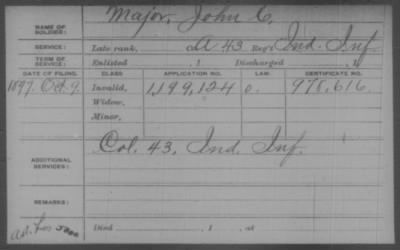 NAME OF SOLDIER: Major, John C.
SERVICE: Late rank, A 43 Reg't Ind. Inf.
TERM OF SERVICE: Enlisted , 1 Discharged , 1
DATE OF FILING. CLASS APPLICATION NO. LAW. CERTIFICATE NO.
1897. Oct. 9. Invalid, 1,199,124 978,616.
Widow,
Minor,
ADDITIONAL SERVICES: Col. 43, Ind. Inf.
REMARKS:
Died , 1 , at